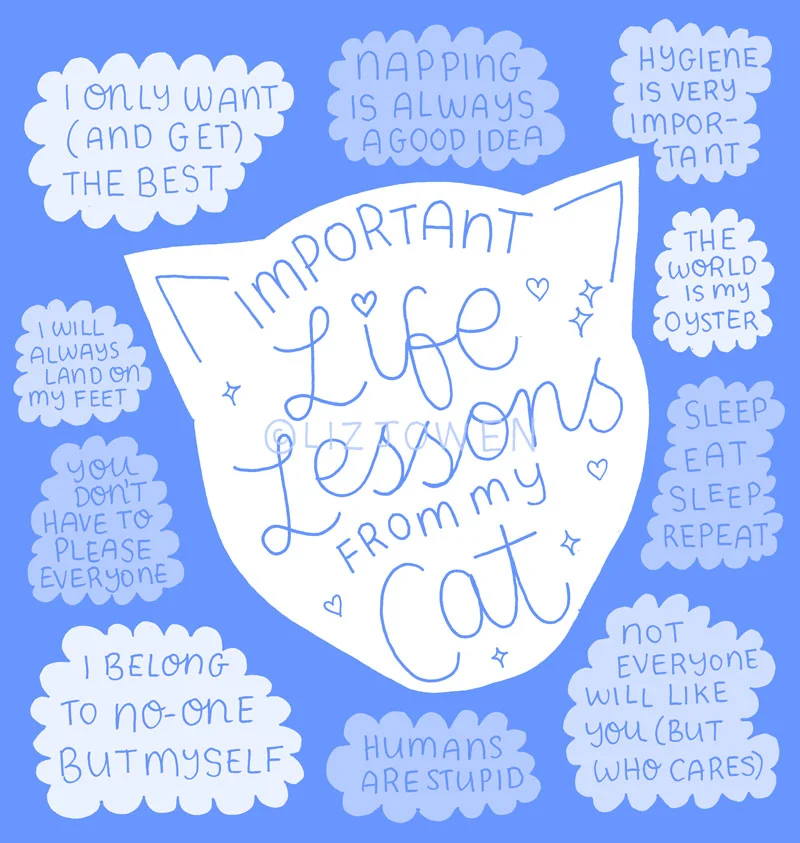 I ONLY WANT
(AND GET)
THE BEST
NAPPING
IS ALWAYS
A GOOD IDEA
HYGIENE
IS VERY
IMPOR-
TANT
IMPORTANT
Life
Lessons
FROM MY
Cat
©LIZTOWEN
THE
WORLD
IS MY
OYSTER
I WILL
ALWAYS
LAND ON
MY FEET
SLEEP
EAT
SLEEP
REPEAT
YOU
DON'T
HAVE TO
PLEASE
EVERYONE
I BELONG
TO NO-ONE
BUT MYSELF
HUMANS
ARE STUPID
NOT
EVERYONE
WILL LIKE
YOU (BUT
WHO CARES)